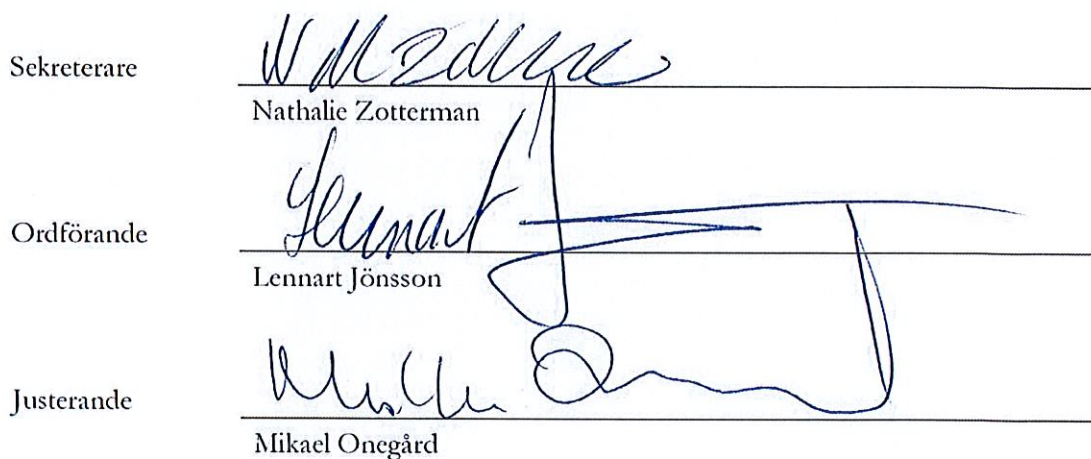 Sekreterare
Nathalie Zotterman
Lennart
Ordförande
Lennart Jönsson
Justerande
Mikael Onegård